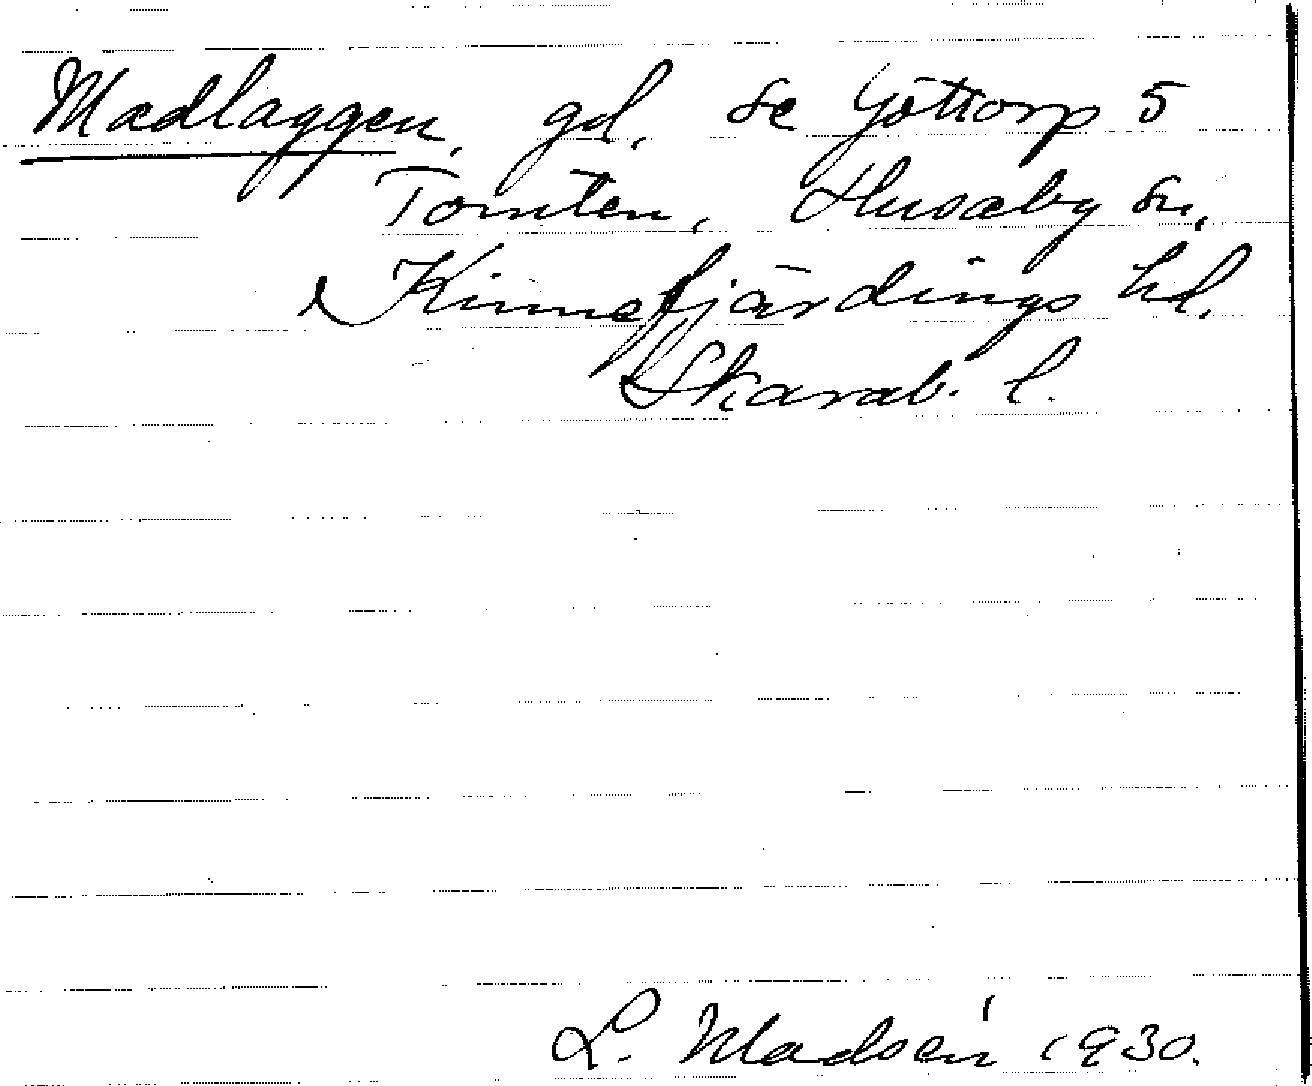 Madlaggen, gd. se Göttorp 5
Tomten, Husaby sn,
Kinnefjärdings hd.
Skarab. l.
L. Madsén 1930.